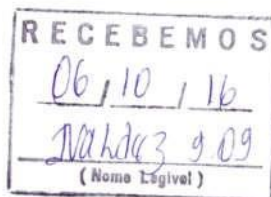 RECEBEMOS
06 / 10 / 16
9.09
( Nome Legível )